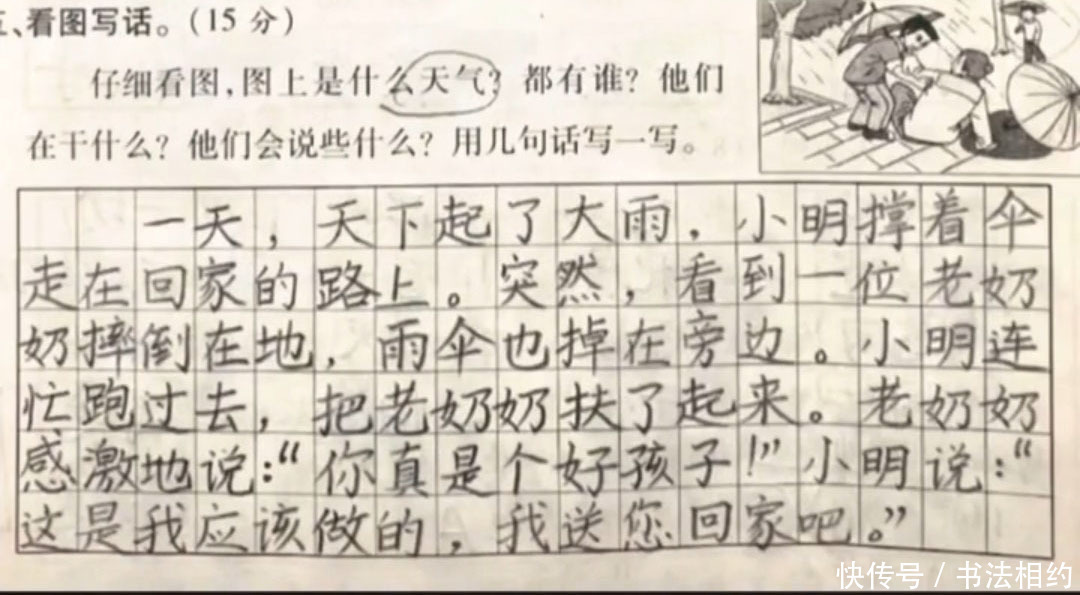 五、看图写话。(15 分)
仔细看图,图上是什么天气? 都有谁? 他们
在干什么? 他们会说些什么? 用几句话写一写。
一天，天下起了大雨，小明撑着伞
走在回家的路上。突然，看到一位老奶
奶摔倒在地，雨伞也掉在旁边。小明连
忙跑过去，把老奶奶扶了起来。老奶奶
感激地说：“你真是个好孩子！”小明说：“
这是我应该做的，我送您回家吧。”
快传号 / 书法相约